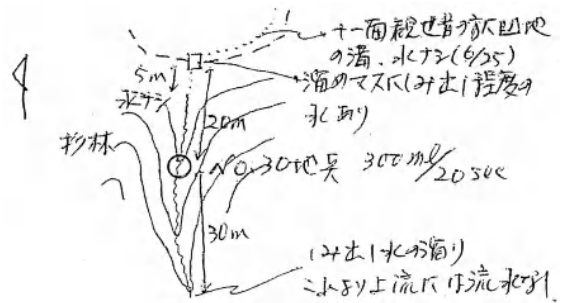 十一面観世音の前凹地
の溝、水ナシ(6/25)
溜めマスにしみ出し程度の
水あり
5m
水ナシ
20m
杉林
?
No.30地点 300ml/20sec
30m
しみ出し水の溜り
これより上流には流水なし